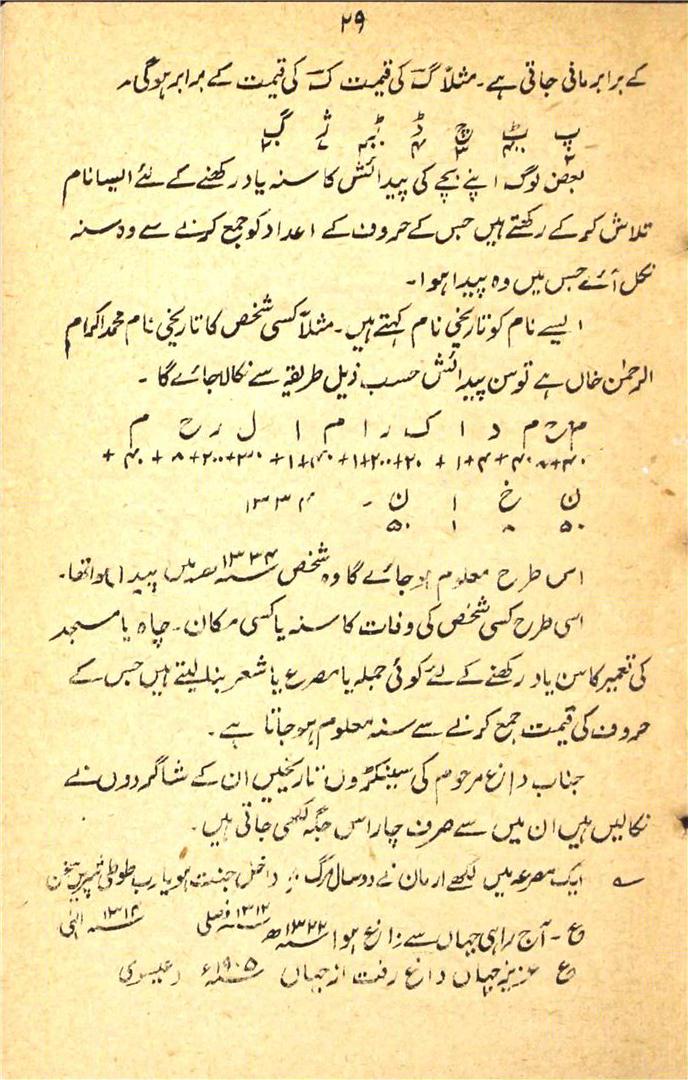 ۲۹
کے برابر مانی جاتی ہے۔ مثلاً گ کی قیمت ک کی قیمت کے برابر ہوگی۔
پ ٹ چ ڈ ڑ ژ گ
بعض لوگ اپنے بچے کی پیدائش کا سنہ یاد رکھنے کے لئے ایسا نام
تلاش کر کے رکھتے ہیں جس کے حروف کے اعداد کو جمع کرنے سے وہ سنہ
نکل آئے جس میں وہ پیدا ہوا۔
ایسے نام کو تاریخی نام کہتے ہیں۔ مثلاً کسی شخص کا تاریخی نام محمد اکرام
الرحمٰن خاں ہے تو سن پیدائش حسب ذیل طریقہ سے نکالا جائے گا ۔
م ح م د ا ک ر ا م ا ل ر ح م
۴۰+۸+۴۰+۴+۱+۲۰+۲۰۰+۱+۴۰+۱+۳۰+۲۰۰+۸+۴۰+
ن خ ا ن - ۱۳۳۴
۵۰ ۱ ۵۰
اس طرح معلوم ہو جائے گا وہ شخص سنہ ۱۳۳۴ ھ میں پیدا ہوا تھا۔
اسی طرح کسی شخص کی وفات کا سنہ یا کسی مکان۔ چاہ یا مسجد
کی تعمیر کا سن یاد رکھنے کے لئے کوئی جملہ یا مصرع یا شعر بنا لیتے ہیں جس کے
حروف کی قیمت جمع کرنے سے سنہ معلوم ہو جاتا ہے ۔
جناب داغ مرحوم کی سینکڑوں تاریخیں ان کے شاگردوں نے
نکالیں ہیں ان میں سے صرف چار اس جگہ لکھی جاتی ہیں۔
؎ ایک مصرعہ میں لکھے ارمان نے دو سال مرگ ؛ داخل جنت ہو یارب طوطی شیریں سخن
سنہ ۱۳۱۲ فصلی سنہ ۱۳۱۴ الٰہی
ع ۔ آج راہی جہاں سے داغ ہوا سنہ ۱۳۲۲ھ
ع عزیز جہاں داغ رفت از جہاں سنہ ۱۹۰۵ء (عیسوی